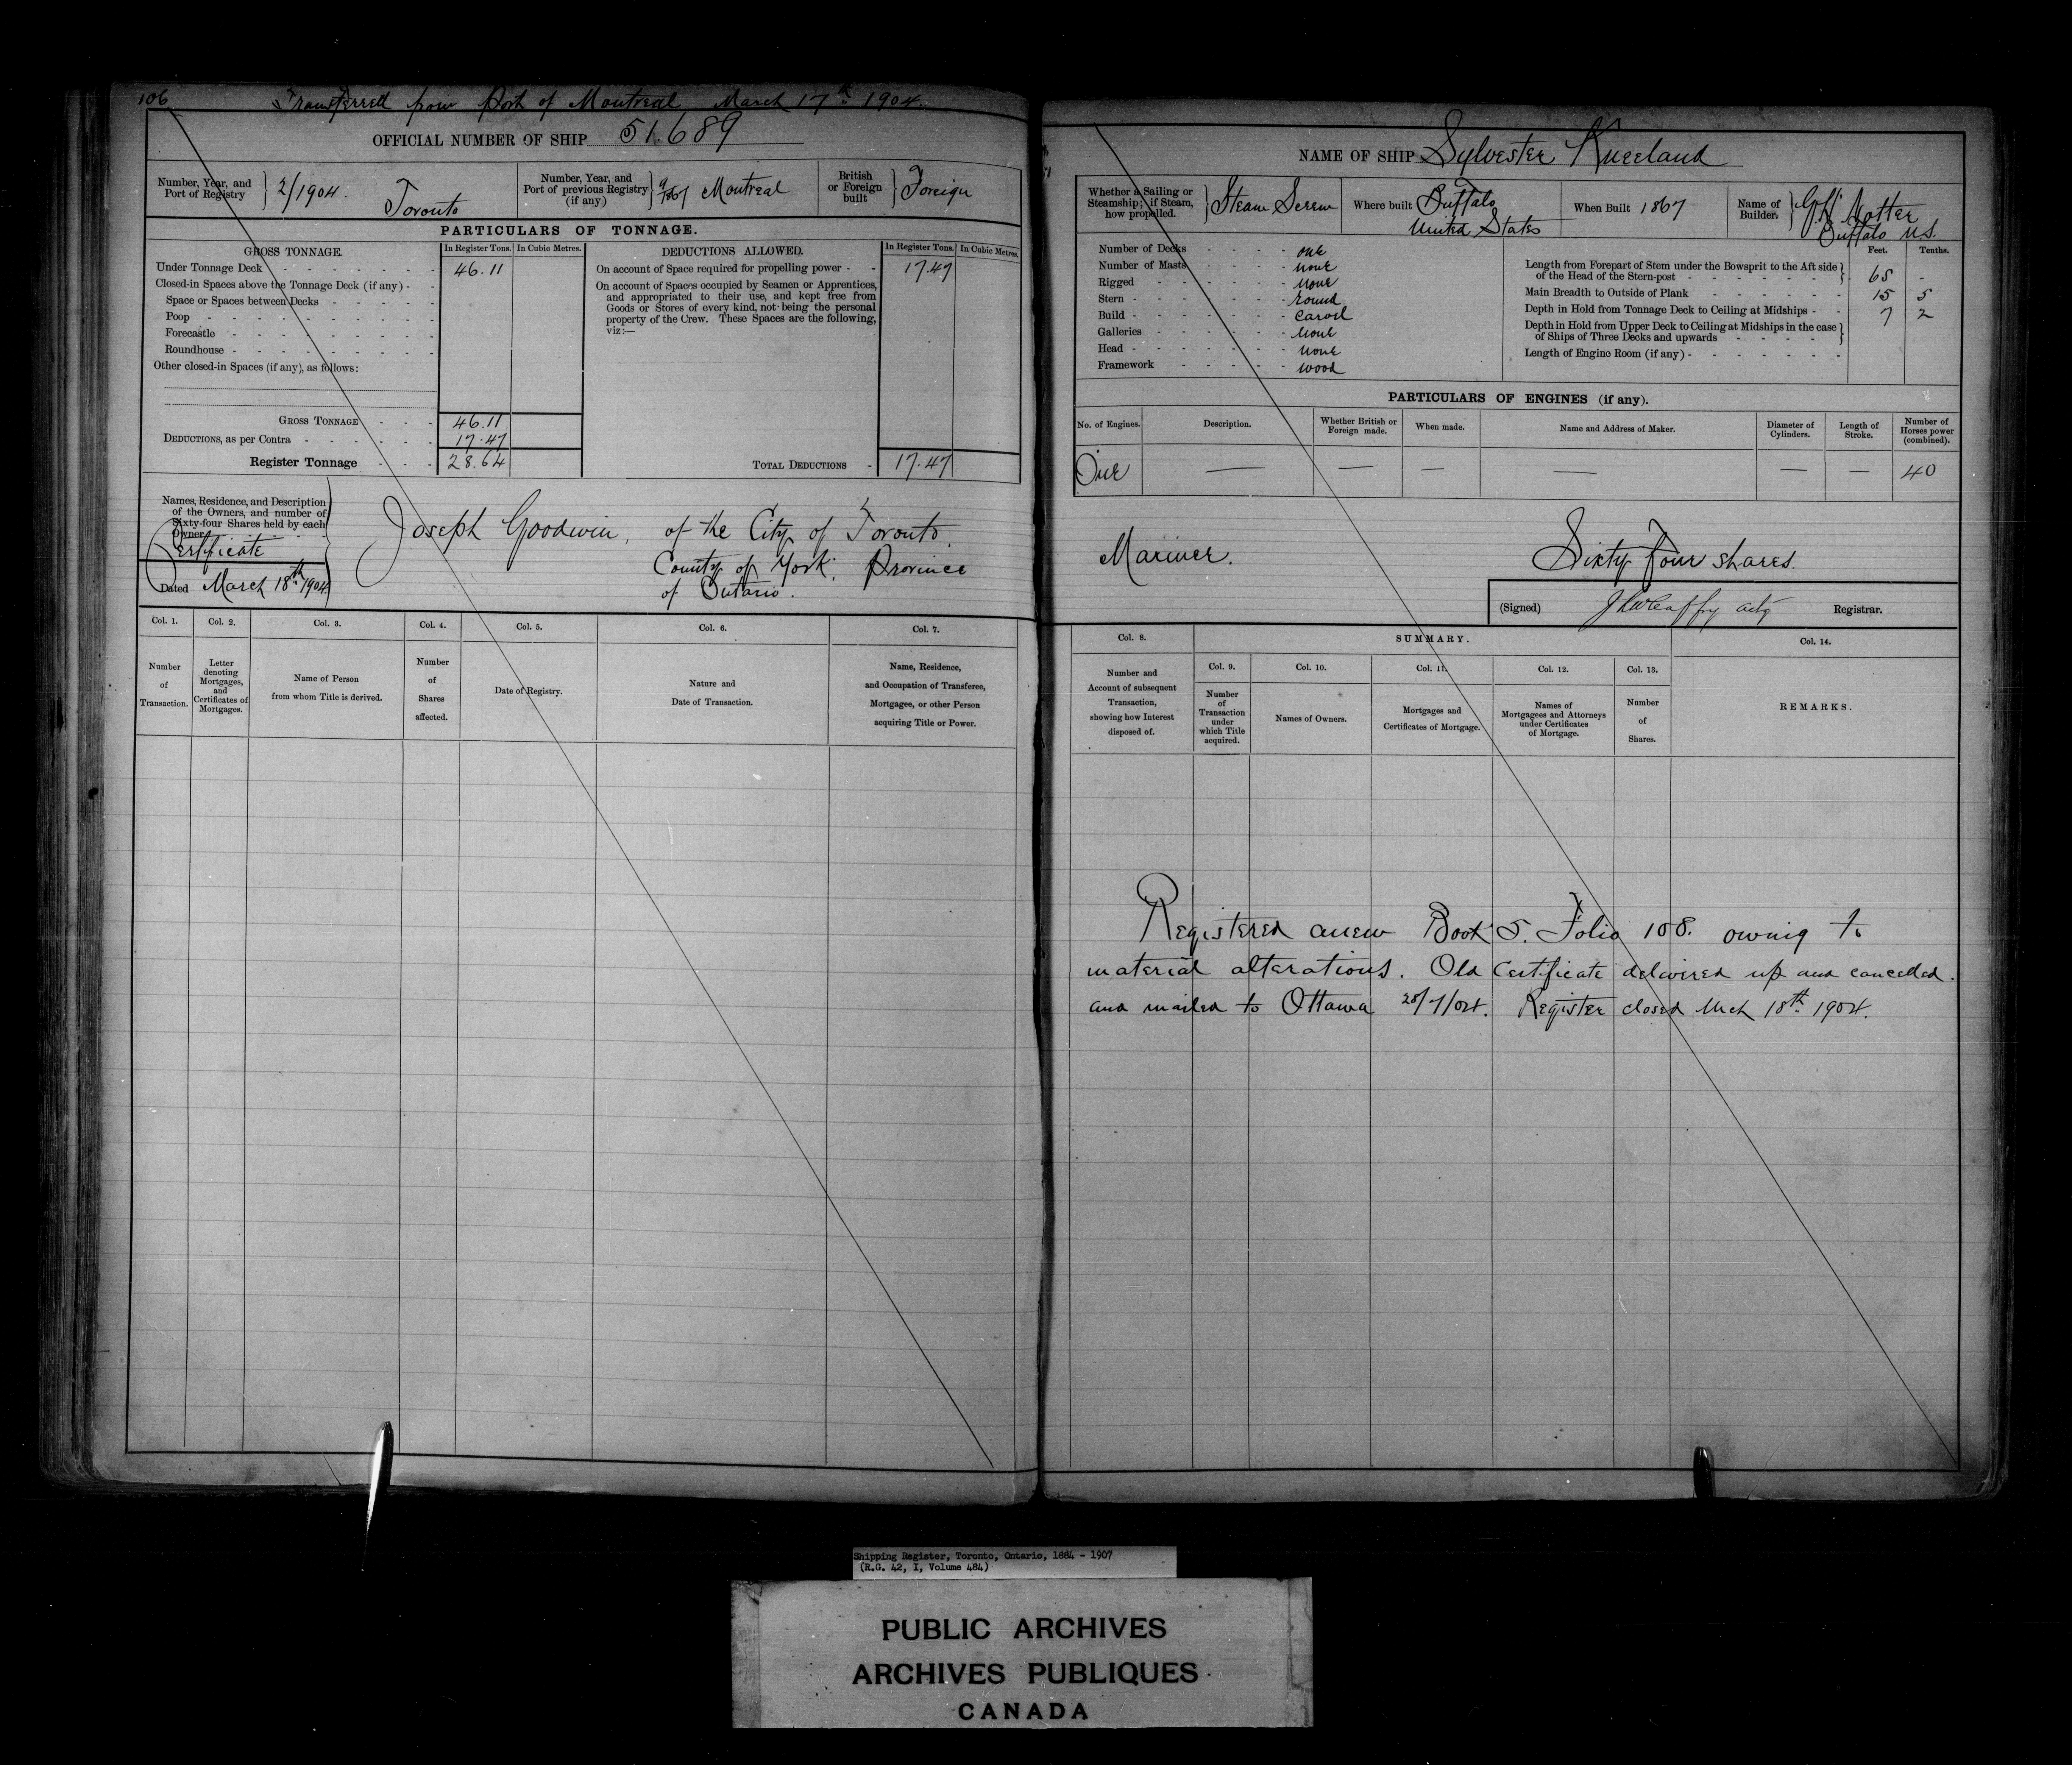 106 Transferred from Port of Montreal March 17th 1904.
OFFICIAL NUMBER OF SHIP 51.689
Number, Year, and Port of Registry } 2/1904. Toronto
Number, Year, and Port of previous Registry (if any) } Montreal
British or Foreign built } Foreign
PARTICULARS OF TONNAGE.
GROSS TONNAGE. In Register Tons. In Cubic Metres.
Under Tonnage Deck 46.11
Closed-in Spaces above the Tonnage Deck (if any)
Space or Spaces between Decks
Poop
Forecastle
Roundhouse
Other closed-in Spaces (if any), as follows:
GROSS TONNAGE 46.11
DEDUCTIONS, as per Contra 17.47
Register Tonnage 28.64
DEDUCTIONS ALLOWED. In Register Tons. In Cubic Metres.
On account of Space required for propelling power 17.47
On account of Spaces occupied by Seamen or Apprentices,
and appropriated to their use, and kept free from
Goods or Stores of every kind, not being the personal
property of the Crew. These Spaces are the following,
viz:—
TOTAL DEDUCTIONS 17.47
Names, Residence, and Description
of the Owners, and number of
Sixty-four Shares held by each
Owner
Certificate
Dated March 18th 1904
Joseph Goodwin, of the City of Toronto,
County of York, Province
of Ontario.
Col. 1. Col. 2. Col. 3. Col. 4. Col. 5. Col. 6. Col. 7.
Number of Transaction.
Letter denoting Mortgages, and Certificates of Mortgages.
Name of Person from whom Title is derived.
Number of Shares affected.
Date of Registry.
Nature and Date of Transaction.
Name, Residence, and Occupation of Transferee, Mortgagee, or other Person acquiring Title or Power.
NAME OF SHIP Sylvester Kneeland
Whether a Sailing or Steamship; if Steam, how propelled. } Steam Screw
Where built Buffalo United States
When Built 1867
Name of Builder. } Notter Buffalo U.S.
Number of Decks one
Number of Masts none
Rigged none
Stern round
Build carvel
Galleries none
Head none
Framework wood
Feet. Tenths.
Length from Forepart of Stem under the Bowsprit to the Aft side
of the Head of the Stern-post } 65 -
Main Breadth to Outside of Plank 15 5
Depth in Hold from Tonnage Deck to Ceiling at Midships 7 2
Depth in Hold from Upper Deck to Ceiling at Midships in the case
of Ships of Three Decks and upwards }
Length of Engine Room (if any)
PARTICULARS OF ENGINES (if any).
No. of Engines. Description. Whether British or Foreign made. When made. Name and Address of Maker. Diameter of Cylinders. Length of Stroke. Number of Horses power (combined).
One — — — — — — 40
Mariner. Sixty four shares.
(Signed) Registrar.
Col. 8. SUMMARY. Col. 14.
Col. 9. Col. 10. Col. 11. Col. 12. Col. 13.
Number and Account of subsequent Transaction, showing how Interest disposed of.
Number of Transaction under which Title acquired.
Names of Owners.
Mortgages and Certificates of Mortgage.
Names of Mortgagees and Attorneys under Certificates of Mortgage.
Number of Shares.
REMARKS.
Registered anew Book S. Folio 108. owing to
material alterations. Old Certificate delivered up and cancelled.
and mailed to Ottawa Register closed Mch 18th 1904.
Shipping Register, Toronto, Ontario, 1884 - 1907
(R.G. 42, I, Volume 484)
PUBLIC ARCHIVES
ARCHIVES PUBLIQUES
CANADA